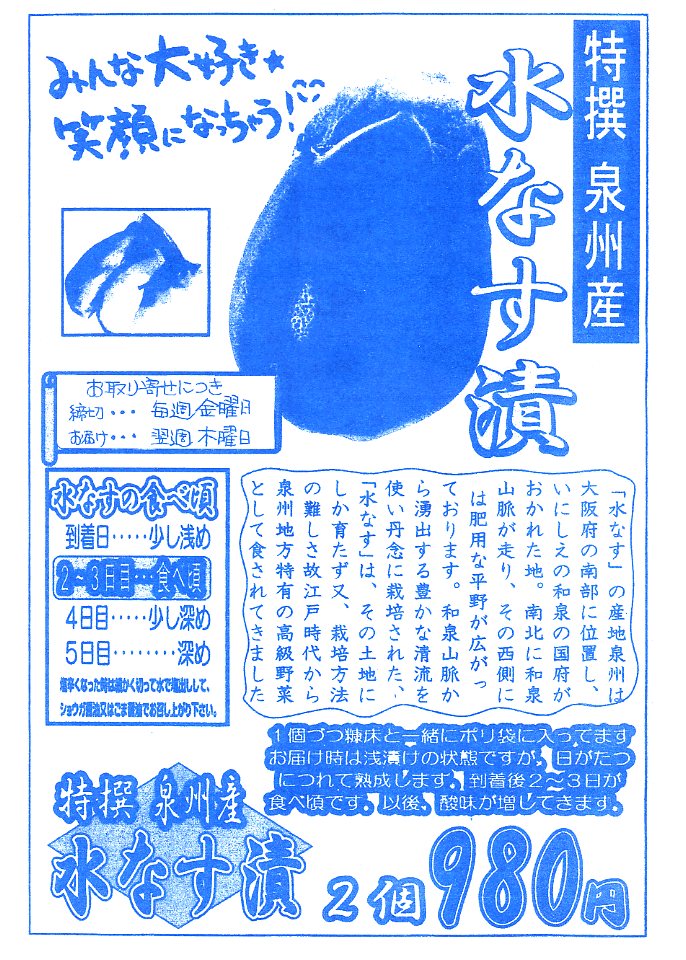 みんな大好き★
笑顔になっちゃう!
特撰 泉州産
水なす漬
お取り寄せにつき
締切・・・毎週金曜日
お届け・・・翌週木曜日
水なすの食べ頃
到着日・・・・・少し浅め
2〜3日目・・・食べ頃
4日目・・・・・・少し深め
5日目・・・・・・・・・深め
塩辛くなった時は細かく切って水で塩出しして、
ショウガ醤油又はごま醤油でお召し上がり下さい。
「水なす」の産地泉州は
大阪府の南部に位置し、
いにしえの和泉の国府が
おかれた地。南北に和泉
山脈が走り、その西側に
は肥用な平野が広がっ
ております。和泉山脈か
ら湧出する豊かな清流を
使い丹念に栽培された、
「水なす」は、その土地に
しか育たず又、栽培方法
の難しさ故江戸時代から
泉州地方特有の高級野菜
として食されてきました
1個づつ糠床と一緒にポリ袋に入ってます
お届け時は浅漬けの状態ですが、日がたつ
につれて熟成します。到着後2〜3日が
食べ頃です。以後、酸味が増してきます。
特撰 泉州産
水なす漬
2個980円